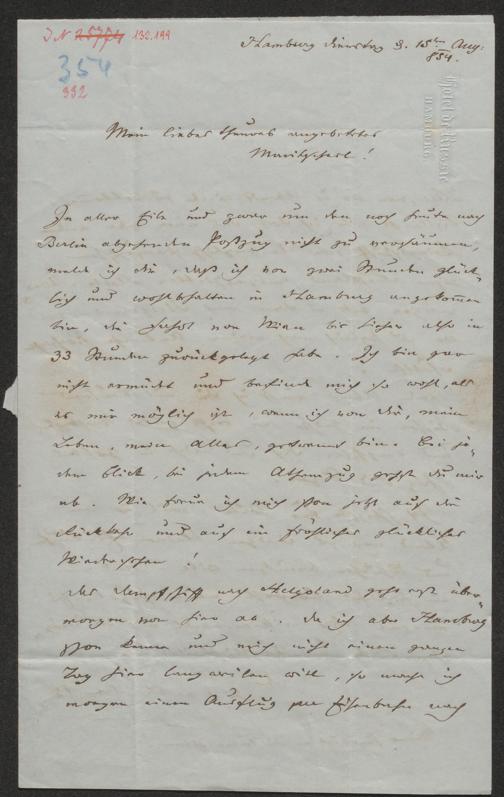 J N 25774 130.199
354
332
Hamburg Dienstag d. 15ten Aug:
854.
Hotel de Russie
HAMBURG
Mein liebes theures angebetetes
Moritzherl!
In aller Eile und zwar um den noch heute nach
Berlin abgehenden Postzug nicht zu versäumen,
melde ich dir, daß ich vor zwei Stunden glück-
lich und wohlbehalten in Hamburg angekommen
bin, die Fahrt von Wien bis hieher also in
33 Stunden zurückgelegt habe. Ich bin gar
nicht ermüdet und befinde mich so wohl, als
es mir möglich ist, wenn ich von dir, mein
Leben, mein Alles, getrennt bin. Bei je-
dem Blick, bei jedem Athemzug gehst du mir
ab. Wie freue ich mich schon jetzt auf die
Rückkehr und auf ein fröhliches glückliches
Wiedersehen!
Das Dampfschiff nach Helgoland geht erst über-
morgen von hier ab. Da ich aber Hamburg
schon kenne und mich nicht einen ganzen
Tag hier langweilen will, so mache ich
morgen einen Ausflug per Eisenbahn nach